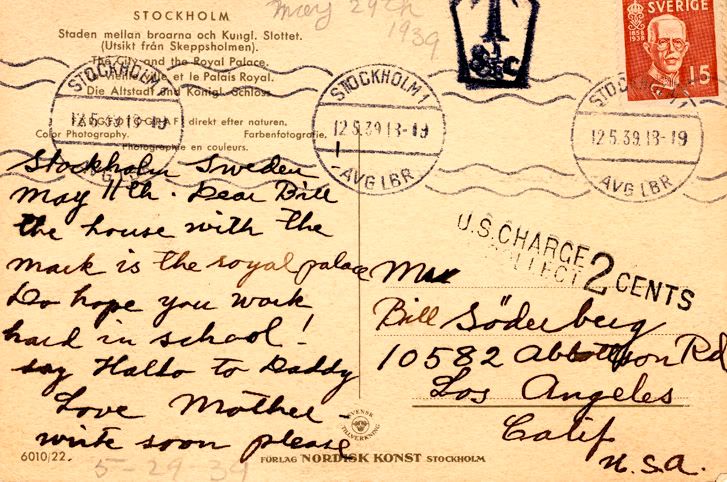 STOCKHOLM
Staden mellan broarna och Kungl. Slottet.
(Utsikt från Skeppsholmen).
The City and the Royal Palace.
et le Palais Royal.
Die Altstadt und Königl. Schloss
direkt efter naturen.
Color Photography. Farbenfotografie.
Photographie en couleurs.
May 29th
1939
T
C
SVERIGE
1858
1938
15
STOCKHOLM 1
12.5.39.18-19
AVG LBR
STOCKHOLM 1
12.5.39.18-19
AVG LBR
STOCKHOLM 1
12.5.39.18-19
AVG LBR
U.S. CHARGE
COLLECT 2 CENTS
Stockholm Sweden
May 11th. Dear Bill
the house with the
mark is the royal palace
Do hope you work
hard in school!
say Hallo to Daddy
Love Mother –
write soon please
Bill Söderberg
10582 Rd
Los Angeles
Calif
U.S.A.
SVENSK
TILLVERKNING
6010/22.
5-29-39
FÖRLAG NORDISK KONST STOCKHOLM